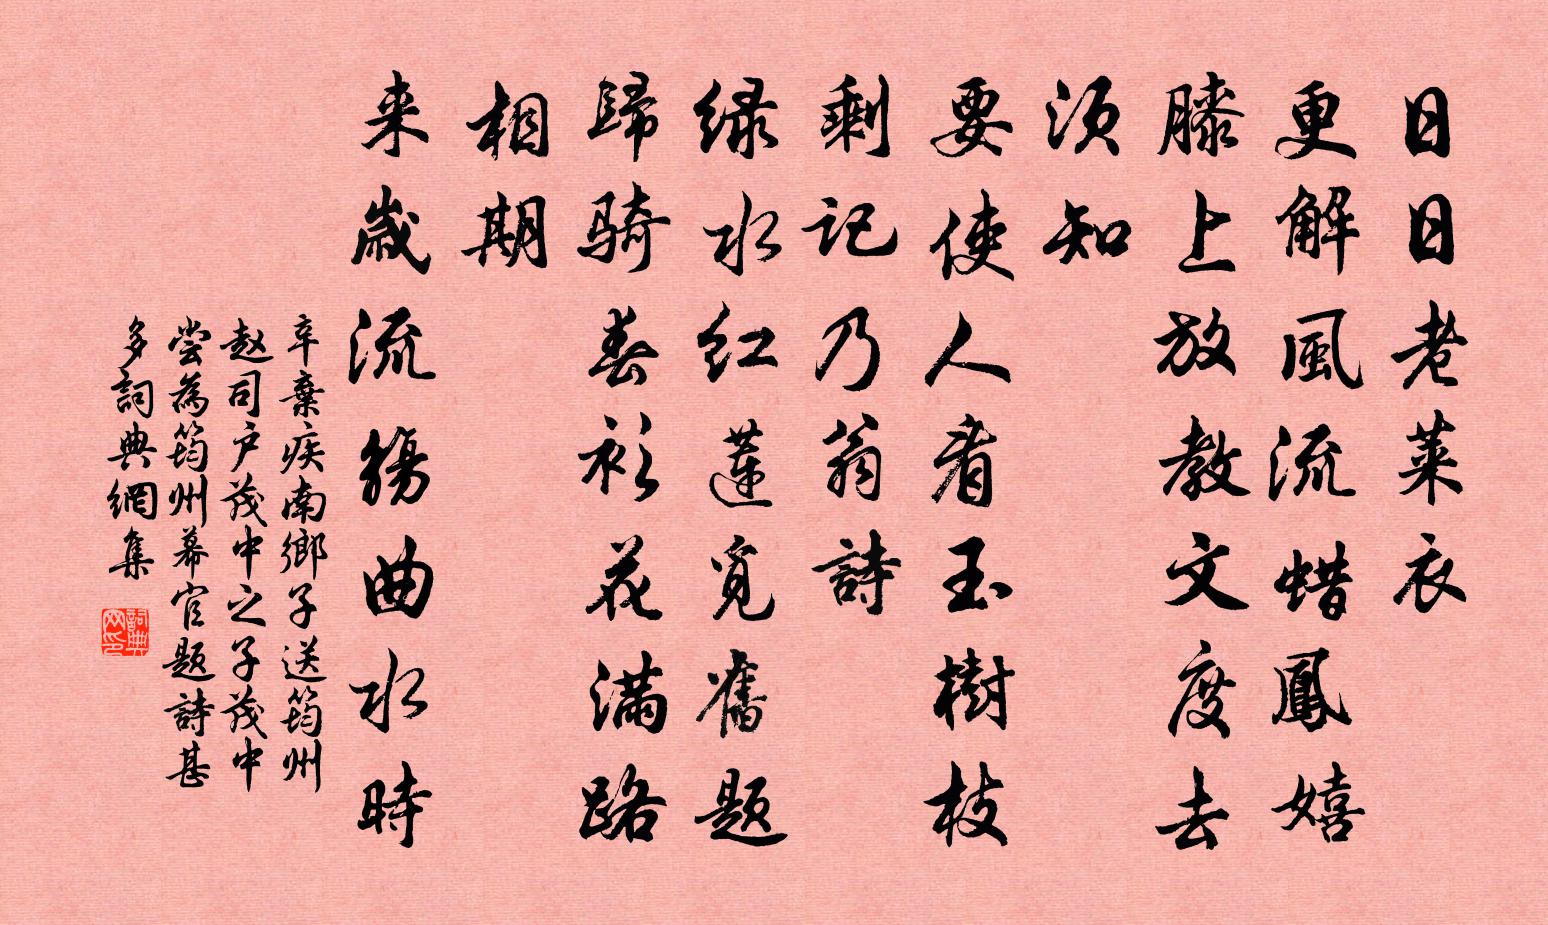 日日老莱衣
更解風流蜡鳳嬉
膝上放教文度去
须知
要使人看玉樹枝
剩記乃翁詩
绿水红蓮覓舊題
歸骑春衫花满路
相期
来歲流觴曲水時
辛棄疾南鄉子送筠州
赵司户茂中之子茂中
尝為筠州幕官题詩甚
多詞典網集
詞典
网印